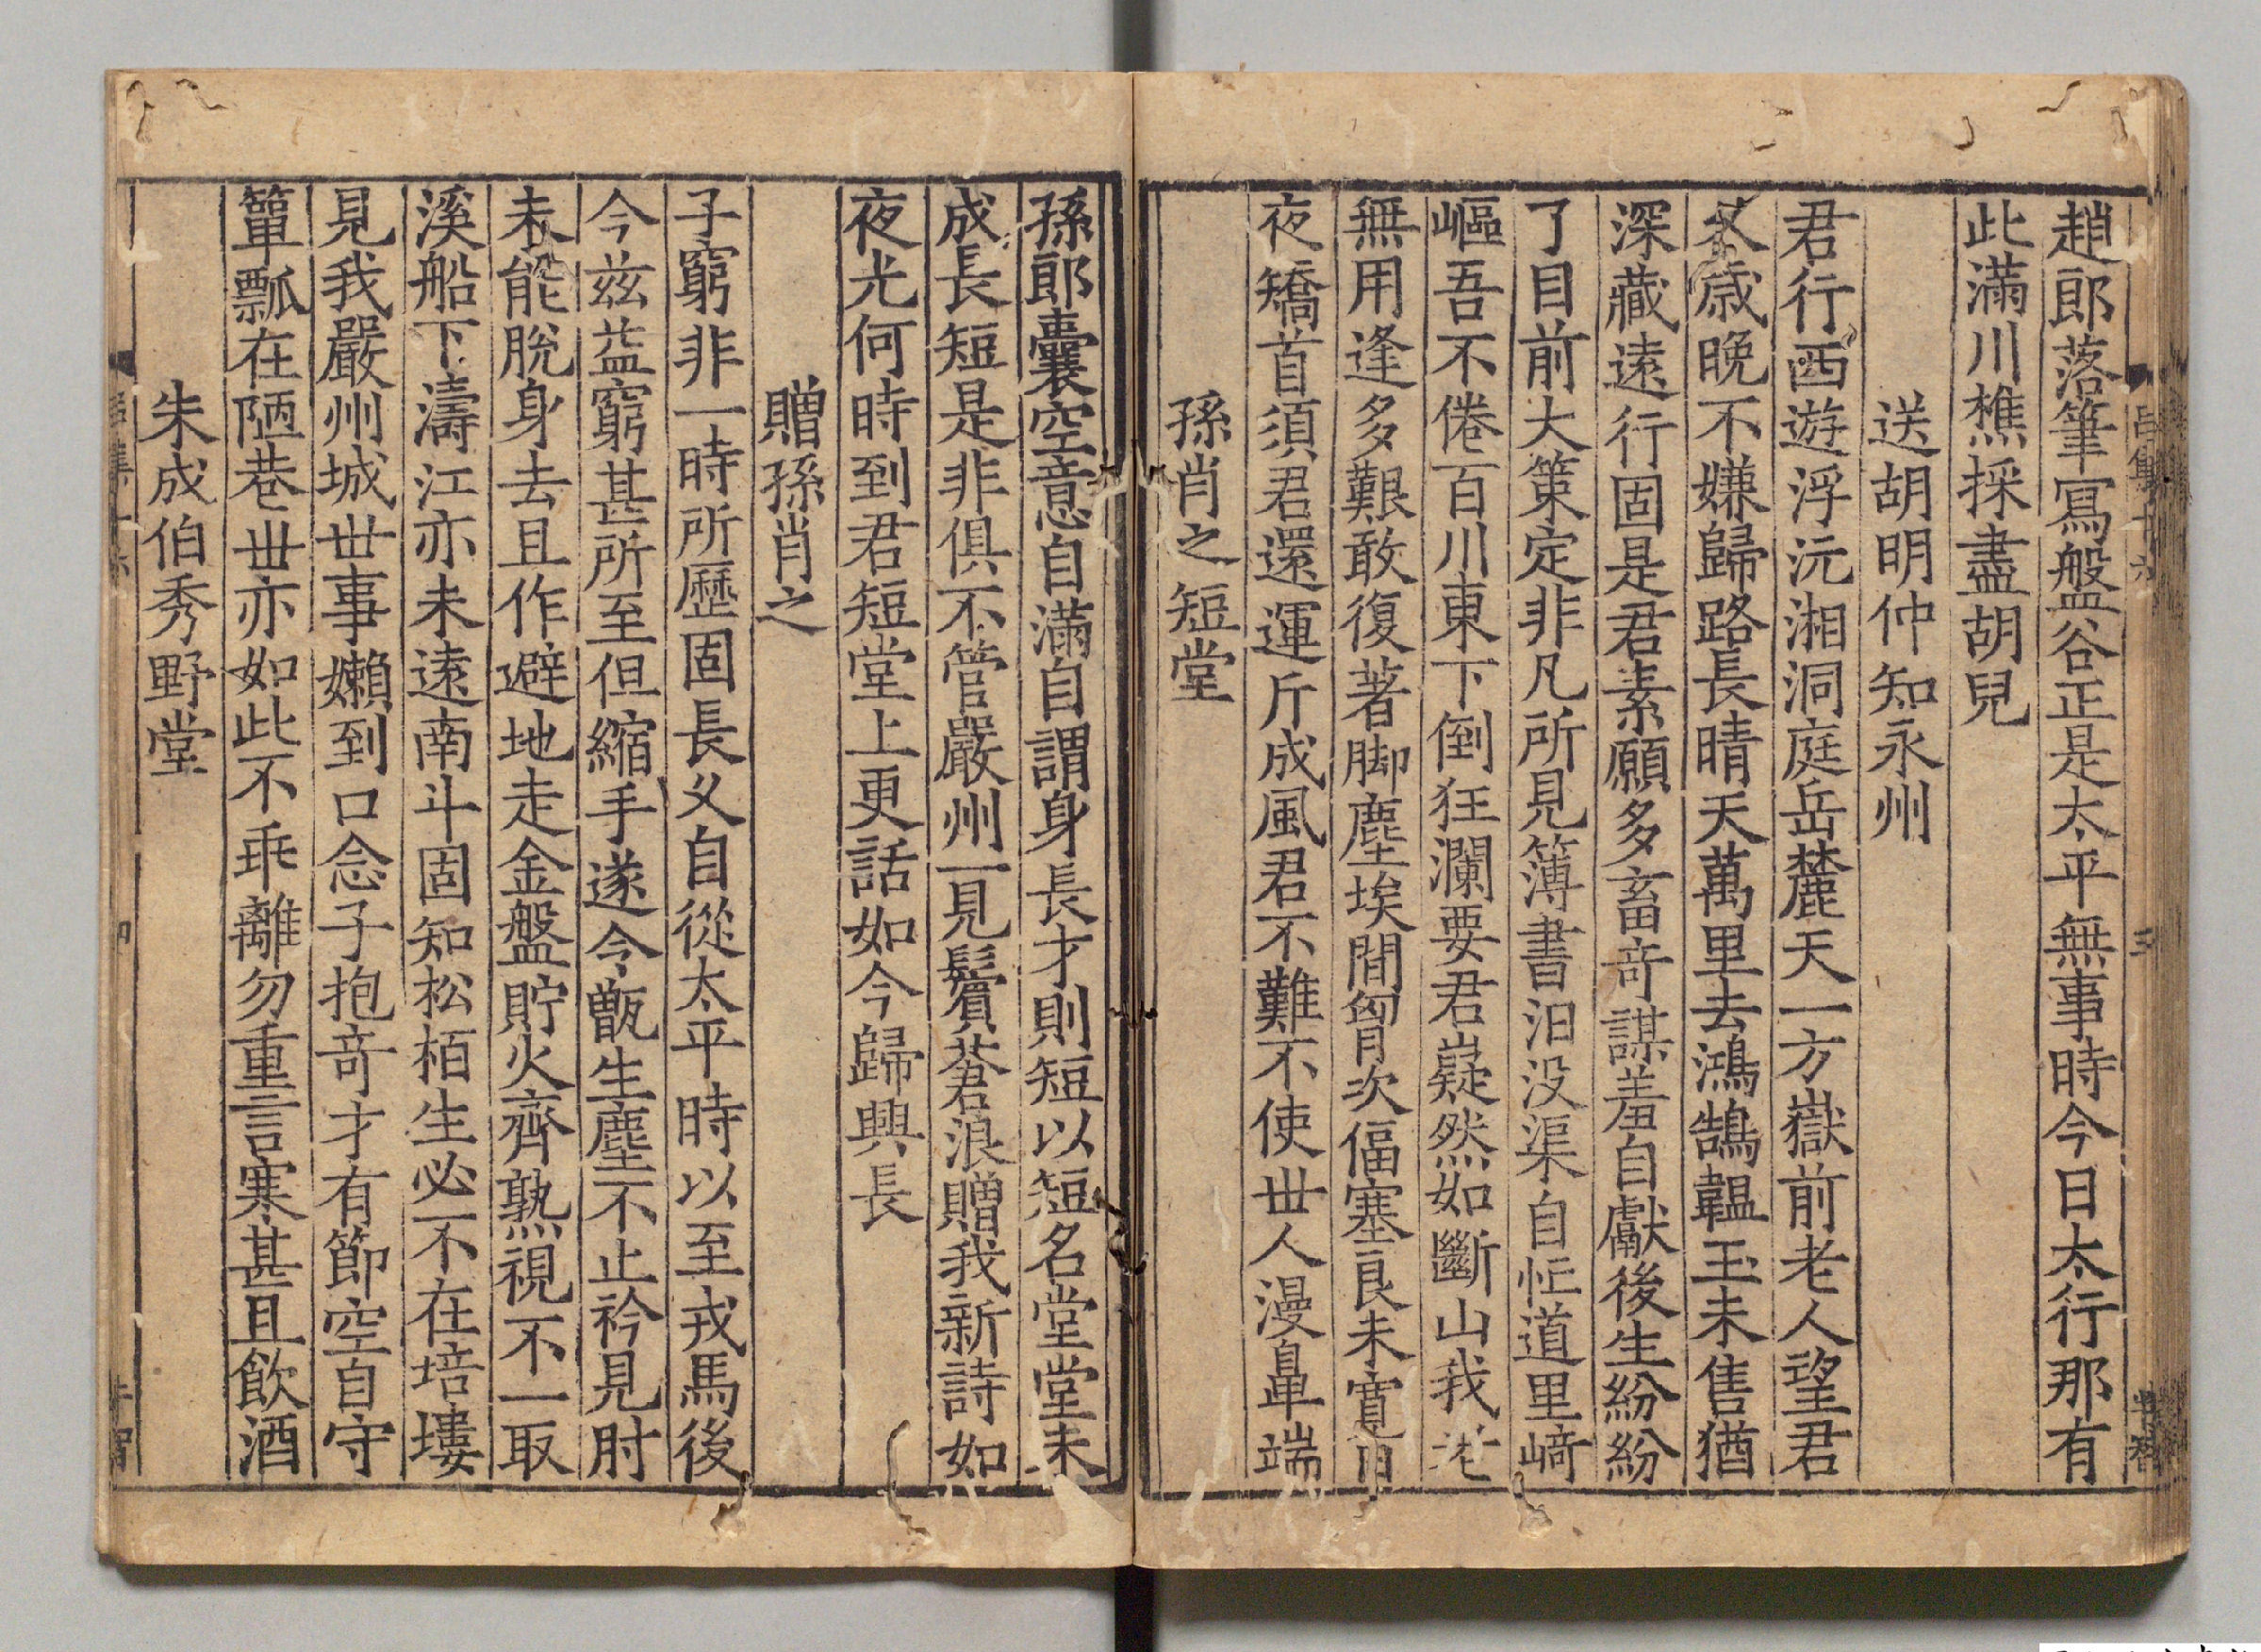 趙郎落筆寫盤谷正是太平無事時今日太行那有
此滿川樵採盡胡兒
送胡明仲知永州
君行西遊浮沅湘洞庭岳麓天一方嶽前老人望君
久歲晚不嫌歸路長晴天萬里去鴻鵠韞玉未售猶
深藏遠行固是君素願多畜奇謀羞自獻後生紛紛
了目前大策定非凡所見簿書汨没渠自忙道里﨑
嶇吾不倦百川東下倒狂瀾要君嶷然如斷山我老
無用逢多艱敢復著脚塵埃間胷次偪塞良未寬
夜矯首須君還運斤成風君不難不使世人漫鼻端
孫肖之短堂
孫郎囊空意自滿自謂身長才則短以短名堂堂未
成長短是非俱不管嚴州一見鬢蒼浪贈我新詩如
夜光何時到君短堂上更話如今歸興長
贈孫肖之
子窮非一時所歷固長乆自從太平時以至戎馬後
今兹益窮甚所至但縮手遂令甑生塵不止衿見肘
未能脫身去且作避地走金盤貯火齊熟視不一取
溪船下濤江亦未遠南斗固知松栢生必不在培塿
見我嚴州城世事嬾到口念子抱竒才有節空自守
簞瓢在陋巷世亦如此不乖離勿重言寒甚且飲酒
朱成伯秀野堂